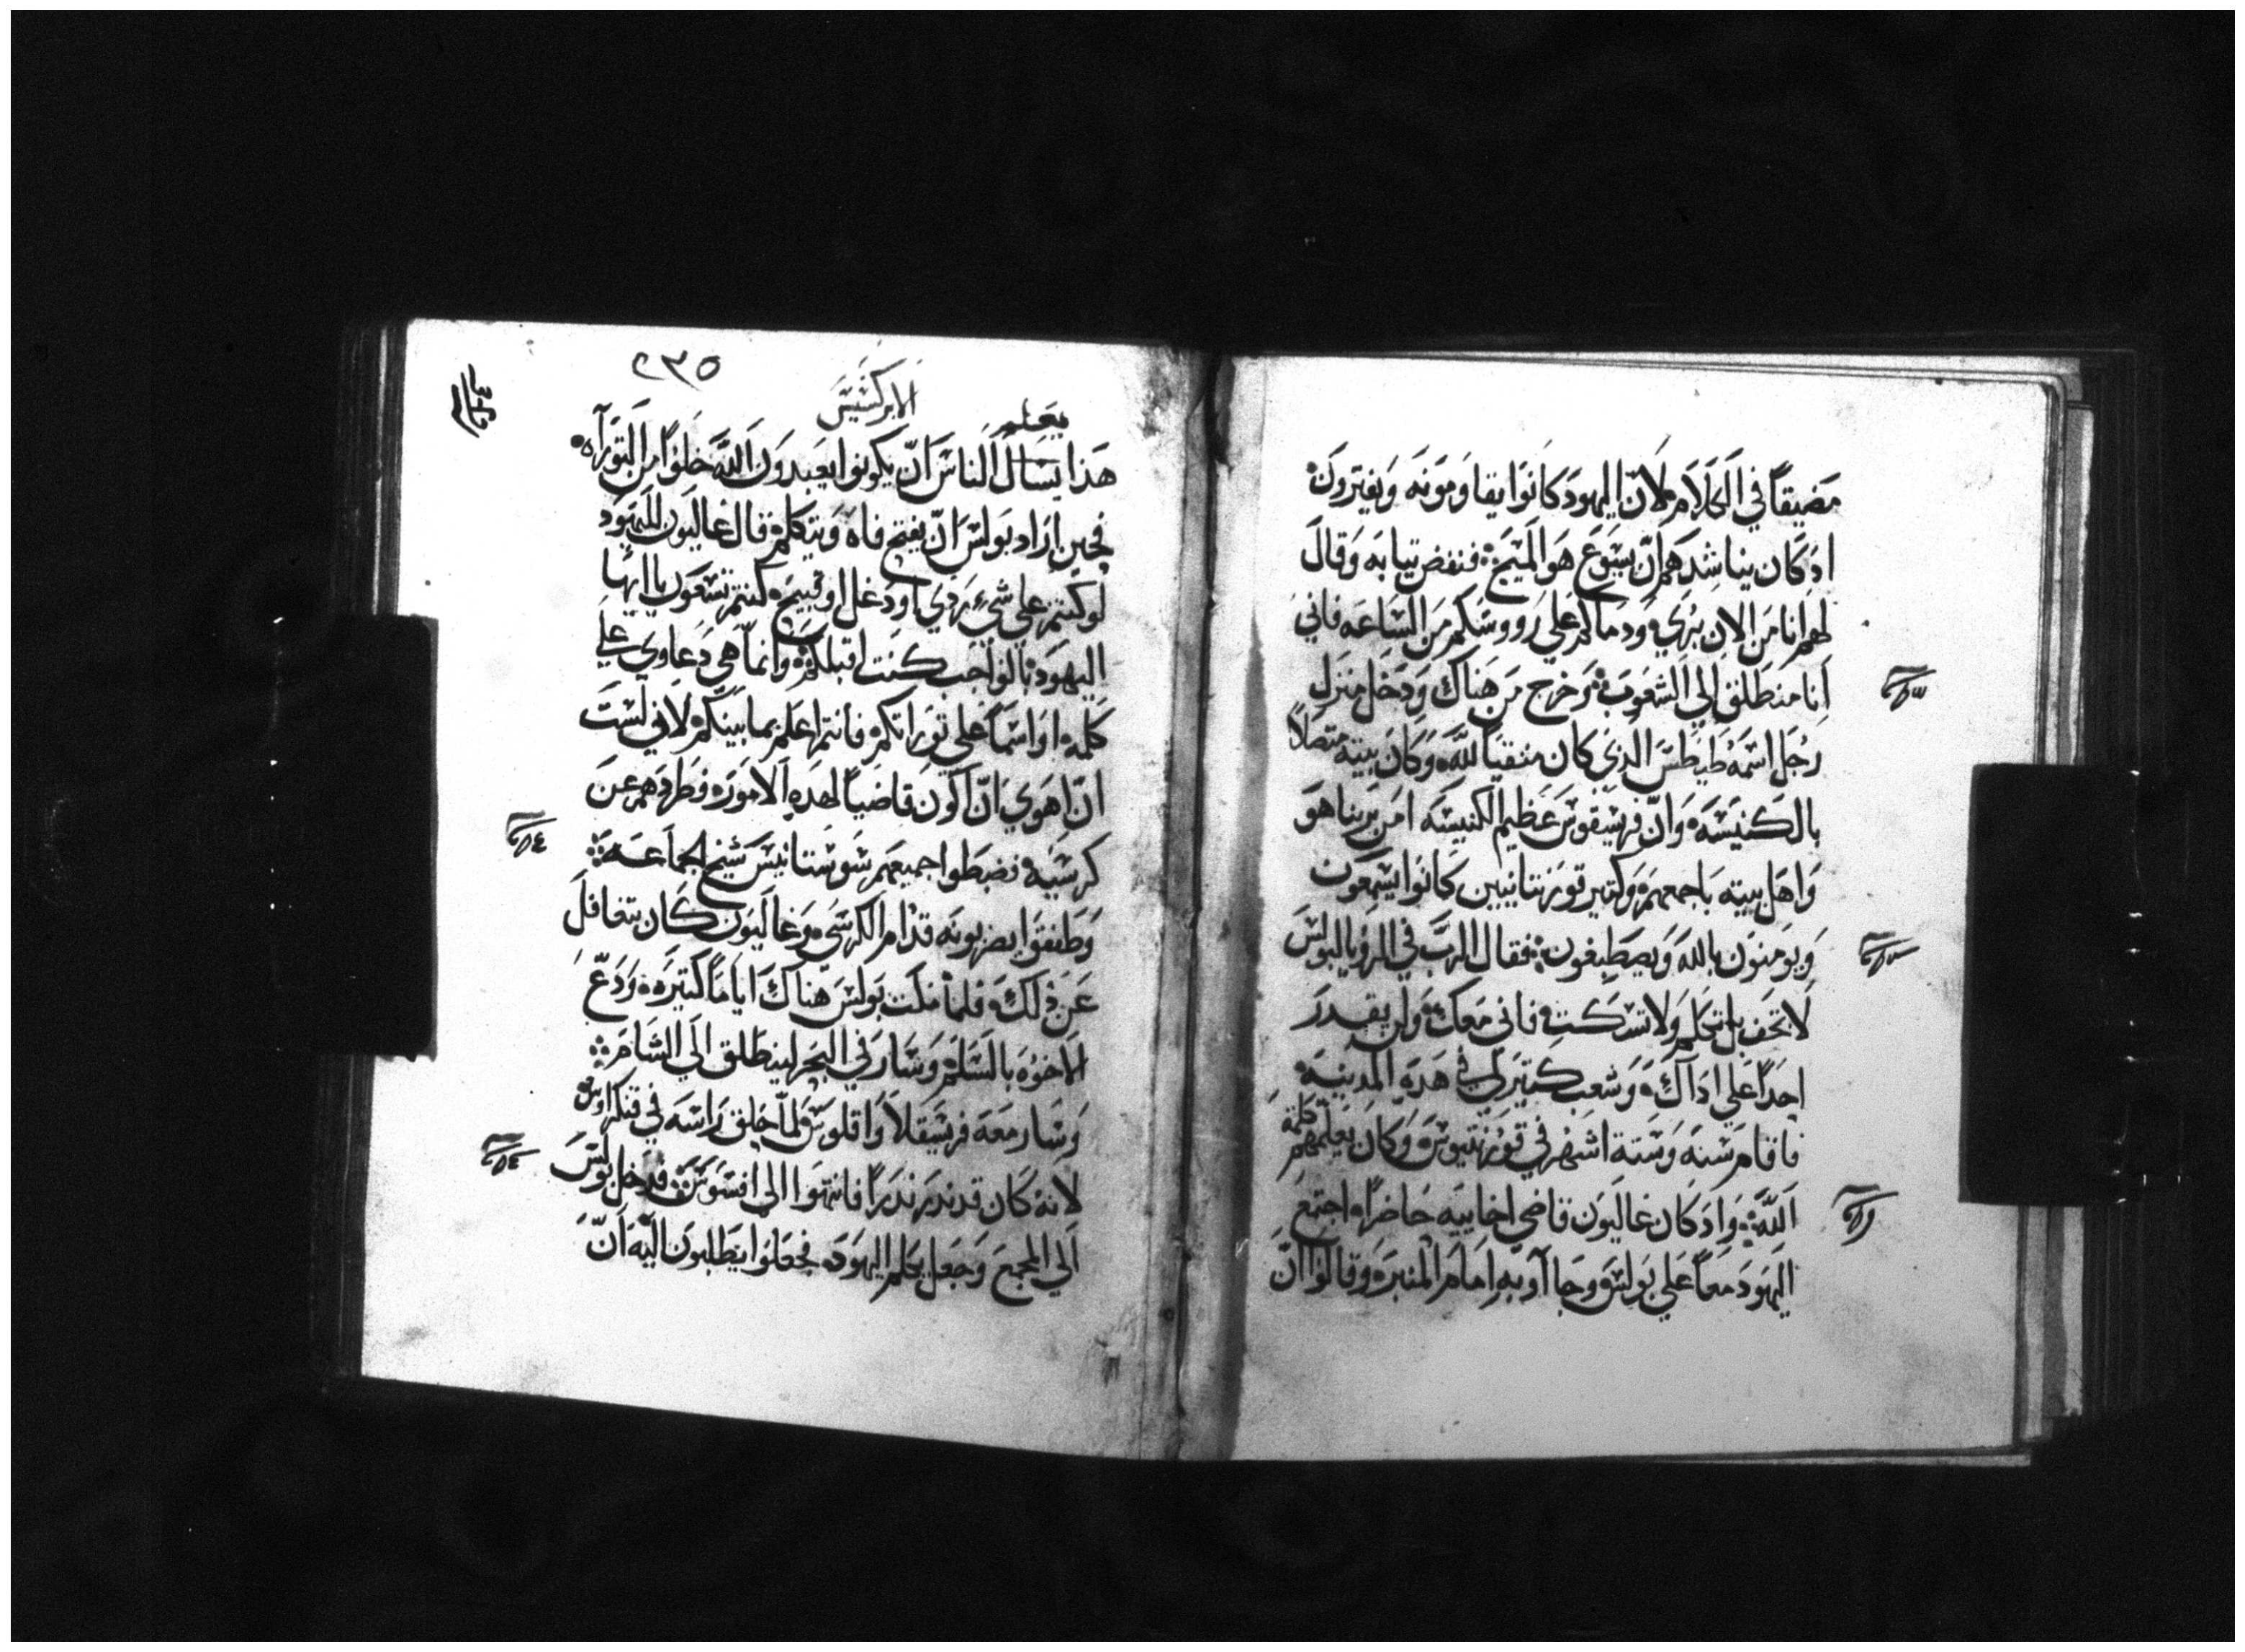 مضيقاً في الكلام لان اليهود كانوا يقاومونه ويفترون
اد كان يناشدهم ان يسوع هو المسيح فنفض تيابه وقال
لهم انا من الان بري ودماكم علي رووسكم من الساعه فاني
انا منطلق الي الشعوب وخرج من هناك ودخل منزل
رجل اسمه طيطس الدي كان متقيا لله وكان بيته متصلاً
بالكنيسه وان فرسقوس عظيم الكنيسه امن بربنا هو
واهل بيته باجمعهم وكتير قورنتانيين كانوا يسمعون
ويومنون بالله ويصطبغون فقال الرب في الرويا لبولس
لا تخف بل تكلم ولا تسكت فاني معك ولن يقدر
احداً علي اداك وشعب كتير لي في هده المدينه
فاقام سنه وستة اشهر في قورنتيوس وكان يعلمهم كلمة
الله واد كان غاليون قاضي اخاييه حاضراً اجتمع
اليهود معاً علي بولس وجااوبه امام المنبر وقالوا ان
٢٣٥
الابركسيس
يعلم
هدا يسال الناس ان يكونوا يعبدون الله خلوا من التوراه
فحين اراد بولس ان يفتح فاه ويتكلم قال غاليون لليهود
لو كنتم علي شيء ردي او دغل او قبيح كنتم تسعون يا ايها
اليهود بالواجب كنت اقبلكم وانما هي دعاوي علي
كلمه او اسما علي توراتكم فانتم اعلم بما بينكم لاني لست
ان اهوي ان اكون قاضياً لهده الامور وطردهم عن
كرسيه فضبطوا جميعهم سوستانيس شيخ الجماعه
وطفقوا يضربونه قدام الكرسي وغاليون كان يتغافل
عن ذلك فلما مكت بولس هناك اياماً كتيره ودع
الاخوه بالسلم وسار في البحر لينطلق الي الشام
وسار معه فرسقلا واقلوس لما حلق راسه في قنكراوس
لانه كان قد ندر ندراً فانتهوا الي افسوس فدخل بولس
الي المجمع وجعل يكلم اليهود فجعلوا يطلبون اليه ان